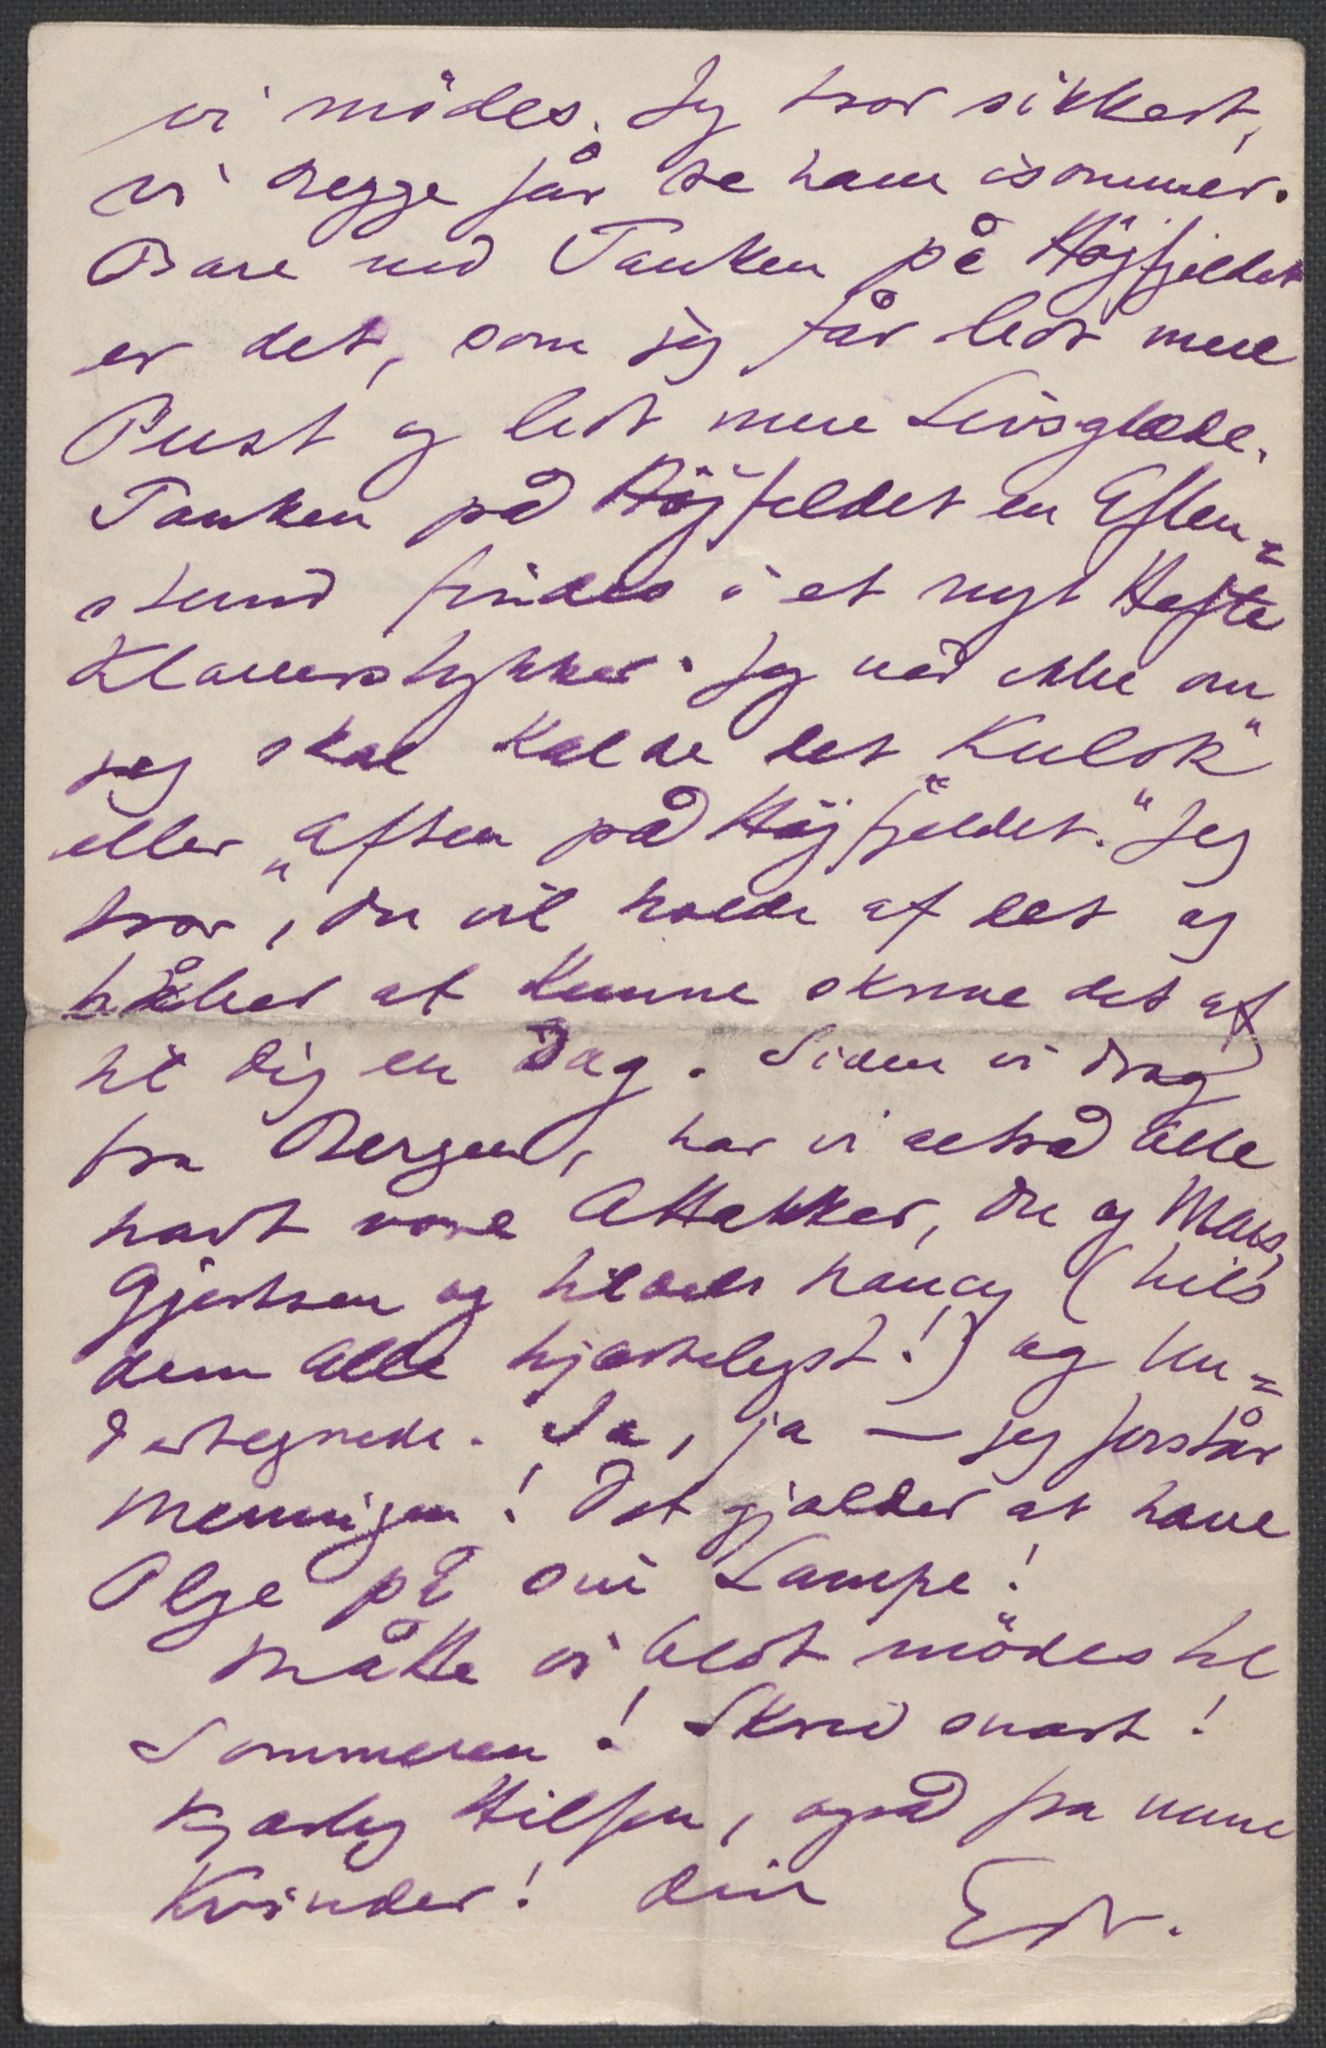 vi mödes. Jeg tror sikkert,
vi begge får se ham isommer.
Bare ved Tanken på Højfjeldet
er det, som jeg får lidt mere
Pust og lidt mere Livsglæde.
Tanken på Højfjeldet en Aften=
stund findes i et nyt Hefte
Klaverstykker. Jeg ved ikke om
jeg skal kalde det „Kulok“
eller „Aften på Højfjeldet.“ Jeg
tror, du vil holde af det og
håber at kunne skrive det af
til dig en Dag. Siden vi drog
fra Bergen, har vi altså alle
havt vore Attakker, du og Marie,
Gjertsen og tildels Nancy (hils
dem alle hjerteligst!) og Un=
dertegnede. Ja, ja — jeg forstår
Meningen! Det gjælder at have
Olje på sin Lampe!
Måtte vi blot mödes til
Sommeren! Skriv snart!
Kjærlig Hilsen, også fra mine
Kvinder! din Edv.